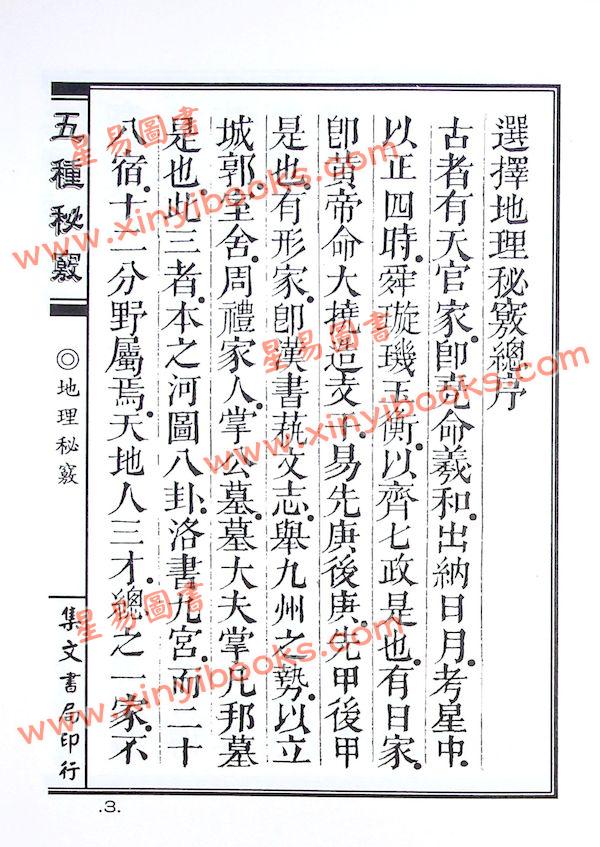 選擇地理秘竅總序
古者有天官家。卽堯命羲和。出納日月。考星中。
以正四時。舜璇璣玉衡。以齊七政是也。有日家。
卽黃帝命大撓造支干。易先庚後庚。先甲後甲
是也。有形家。卽漢書蓺文志。舉九州之勢。以立
城郭。室舍。周禮家人。掌公墓。墓大夫掌凡邦墓
是也。此三者。本之河圖八卦。洛書九宮。而二十
八宿。十二分野屬焉。天地人三才。總之一家。不
五種秘竅
◎地理秘竅
集文書局印行
.3.
星易圖書
www.xinyibooks.com
星易圖書
www.xinyibooks.com
星易圖書
www.xinyibooks.com